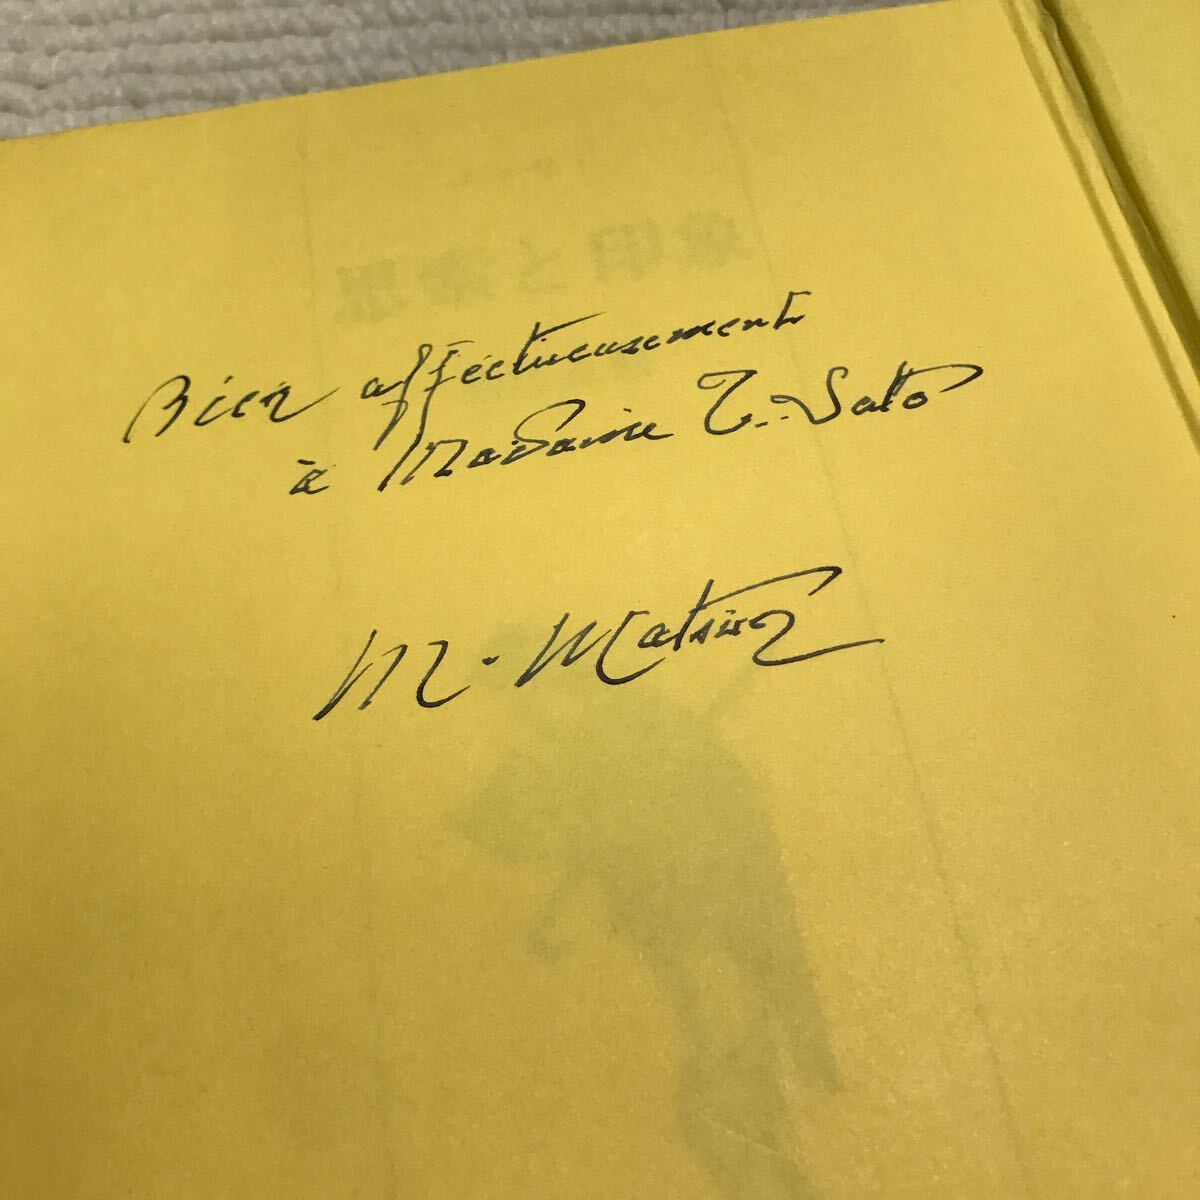 Bien affectueusement
à Madame T. Sato
M. Matsuo